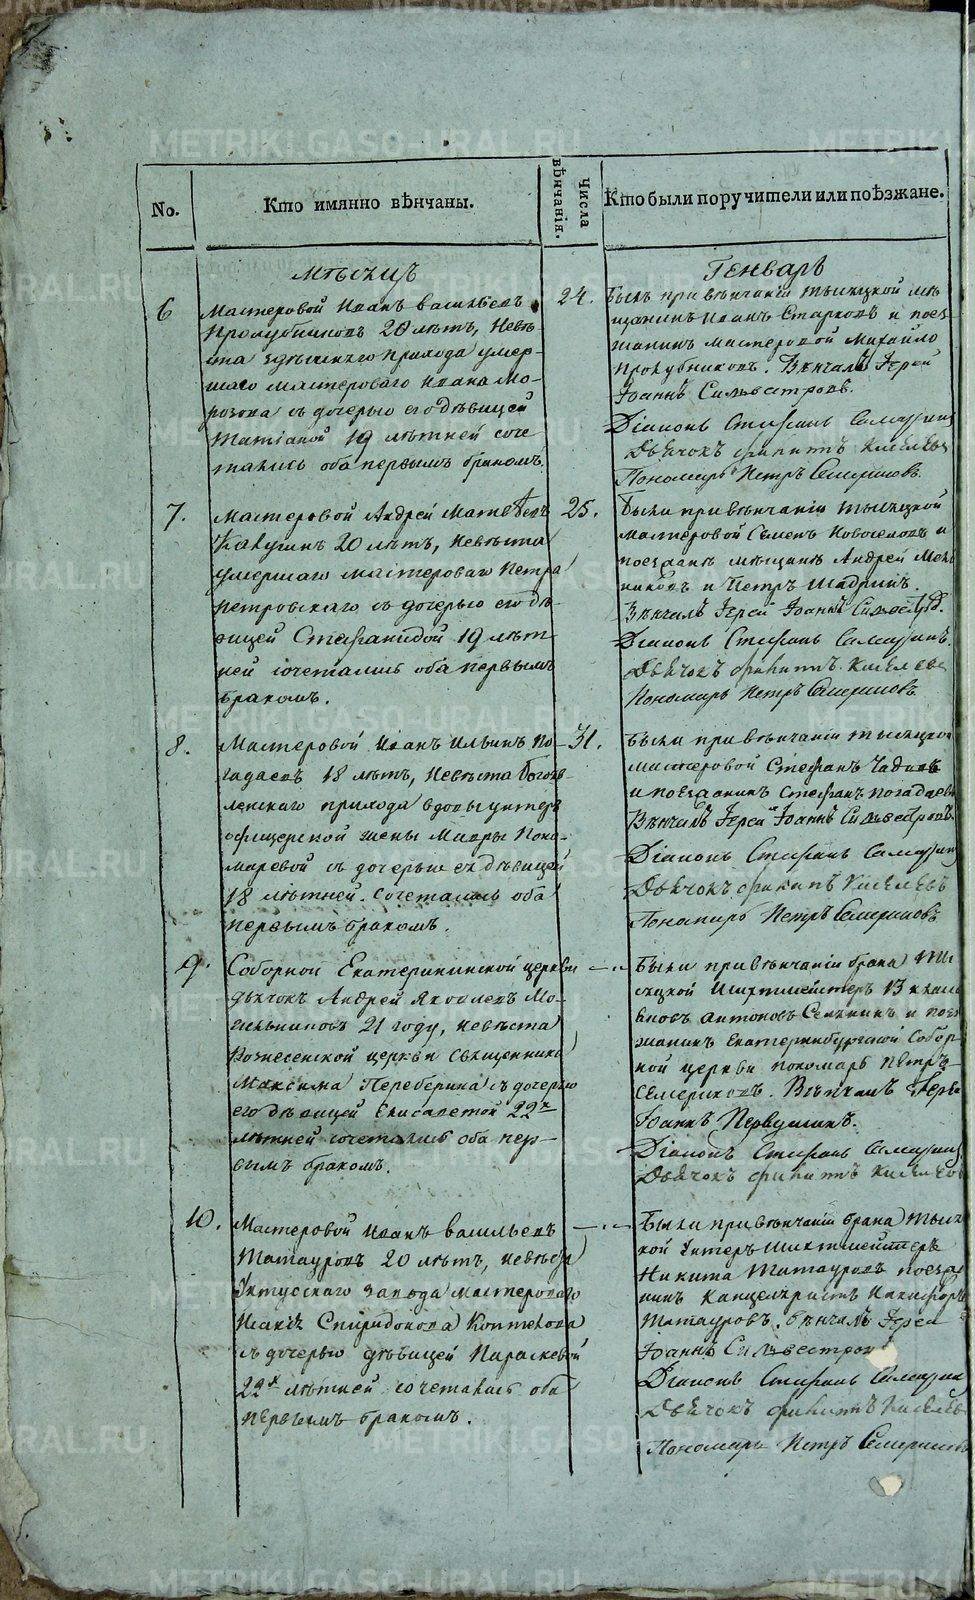 No.
Кто имянно вѣнчаны.
Числа
вѣнчанія.
Кто были поручители или поѣзжане.
Мѣсяцъ
Генварь
6
Мастеровой Иванъ Васильевъ
Пролубниковъ 20 лѣтъ, Невѣ-
ста здѣшняго прихода умер-
шаго мастероваго Ивана Мо-
розова съ дочерью его дѣвицей
Татіаной 19 лѣтней соче
тались оба первымъ бракомъ.
24.
Былъ при вѣнчаніи
щанинъ Иванъ Старковъ и поез
жанинъ мастеровой Михайло
Пролубниковъ. Вѣнчалъ Іерей
Іоаннъ Сильвестровъ.
Діаконъ Стефанъ
Дьячокъ Киселевъ
Пономарь Петръ Семериковъ
7.
Мастеровой Андрей
20 лѣтъ, невѣста
умершаго мастероваго Петра
Петровскаго съ дочерью его дѣ-
вицей Стефанидой 19 лѣт-
ней сочетались оба первымъ
бракомъ.
25.
Были при вѣнчаніи
мастеровой Семенъ Новоселовъ и
поезжане мѣщане Андрей
и Петръ Шадринъ
Вѣнчалъ Іерей Іоаннъ
Діаконъ Стефанъ
Дьячокъ Киселевъ
Пономарь Петръ Семериковъ
8.
Мастеровой Иванъ Ильинъ По-
гадаевъ 18 лѣтъ, невѣста Богояв-
ленскаго прихода вдовы унтеръ
офицерской жены Мавры Поно-
маревой съ дочерью ея дѣвицей
18 лѣтней. сочетались оба
первымъ бракомъ.
31.
Были при вѣнчаніи
мастеровой Стефанъ
и поезжанинъ Стефанъ Погадаевъ
Вѣнчалъ Іерей Іоаннъ Сильвестровъ
Діаконъ Стефанъ
Дьячокъ Киселевъ
Пономарь Петръ Семериковъ
9.
Соборной Екатерининской церкви
дьячокъ Андрей Яковлевъ Мо-
21 году, невѣста
Вознесенской церкви священника
Максима Переберина съ дочерью
его дѣвицей Елисаветой 22х
лѣтней сочетались оба пер-
вымъ бракомъ.
Были при вѣнчаніи брака
Шихтмейстеръ 13 класса
Антоновъ и поез
жанинъ Екатеринбургской Собор-
ной церкви пономарь Петръ
Семериковъ. Вѣнчалъ Іерей
Іоаннъ Первушинъ.
Діаконъ Стефанъ
Дьячокъ Киселевъ
10.
Мастеровой Иванъ Васильевъ
Татауровъ 20 лѣтъ, невѣста
Уктусскаго завода мастероваго
Исакія Спиридонова Коптелова
съ дочерью дѣвицей Параскевой
22х лѣтней сочетались оба
первымъ бракомъ.
Были при вѣнчаніи брака
кой Унтеръ Шихтмейстеръ
Никита Татауровъ поезжа
нинъ Канцеляристъ Никифоръ
Татауровъ. Вѣнчалъ Іерей
Іоаннъ Сильвестровъ
Діаконъ Стефанъ
Дьячокъ Киселевъ
Пономарь Петръ Семериковъ
METRIKI.GASO-URAL.RU